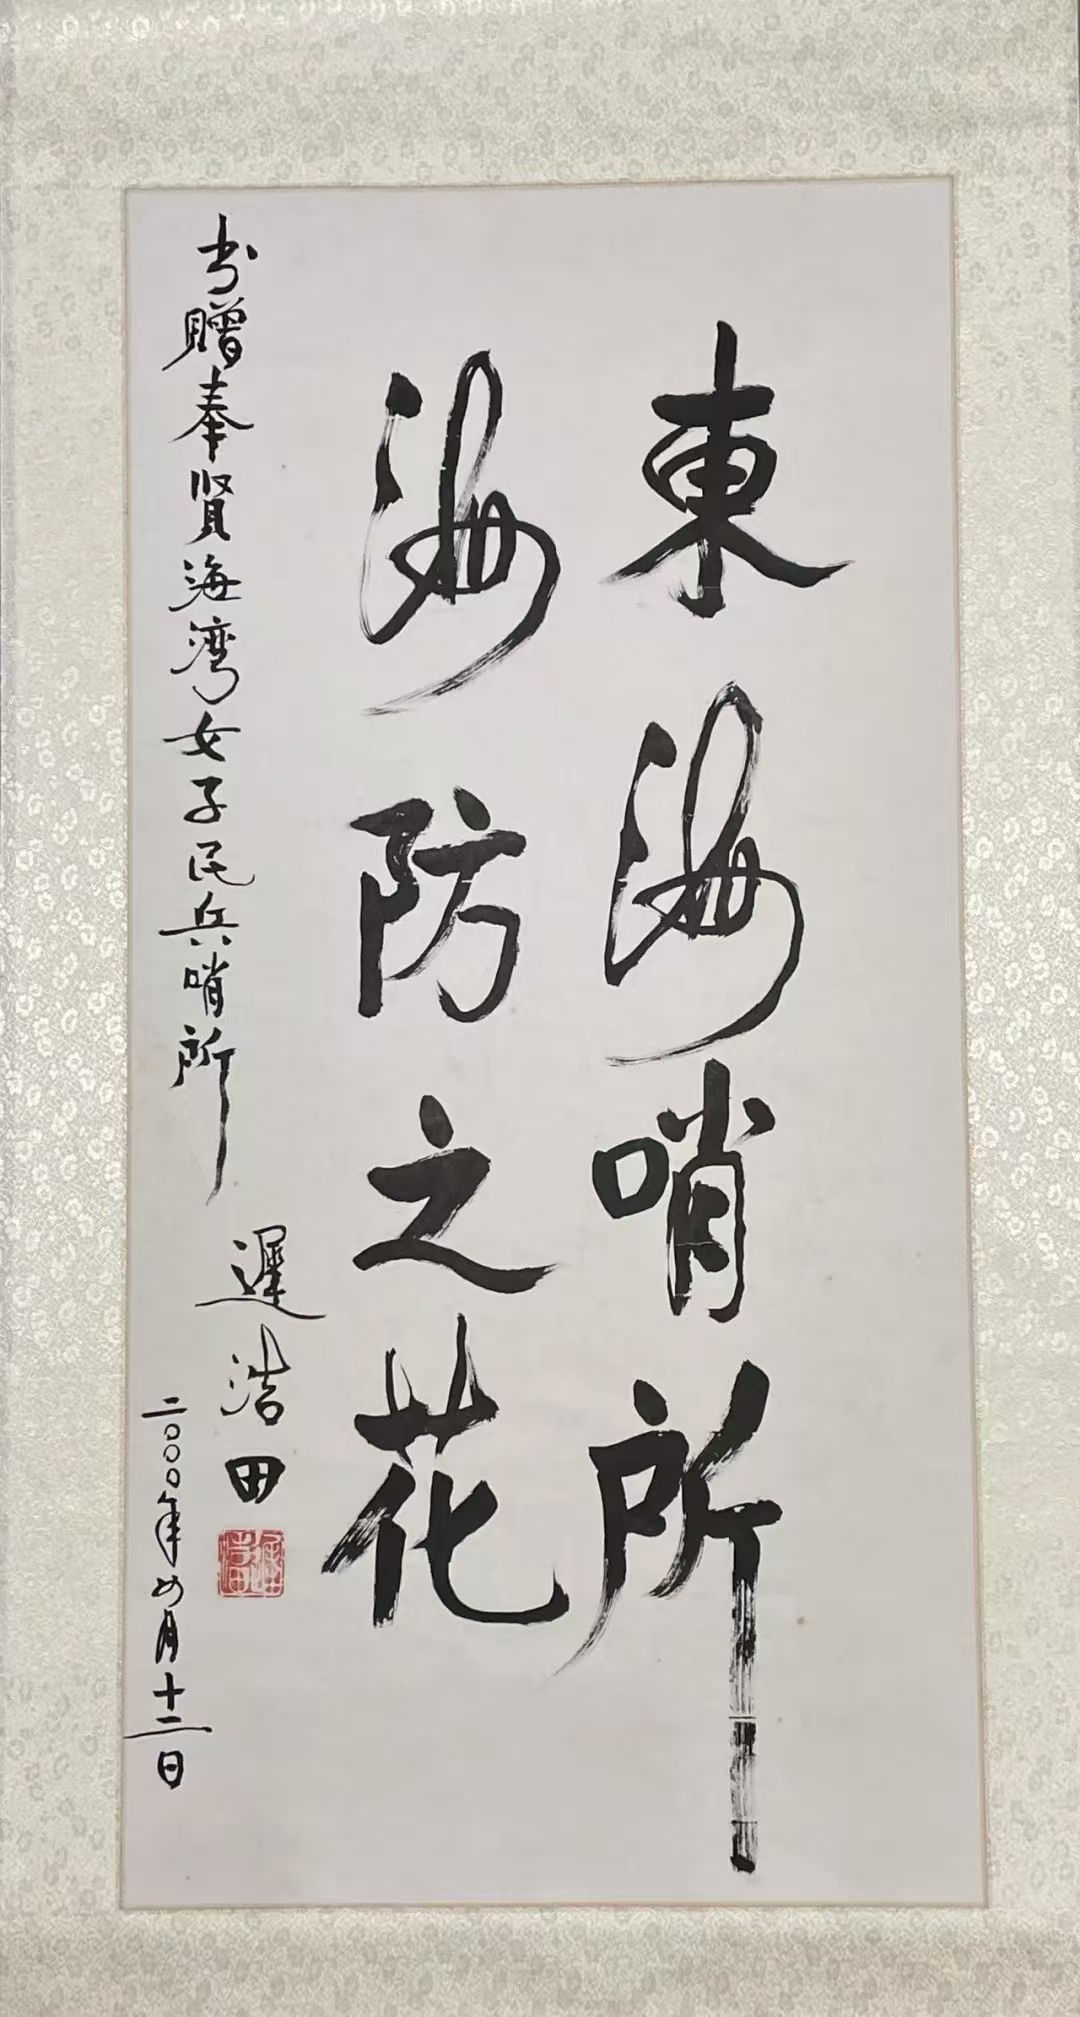 東海哨所
海防之花
书贈奉賢海湾女子民兵哨所
遲浩田
二〇〇〇年四月十二日
遲浩田